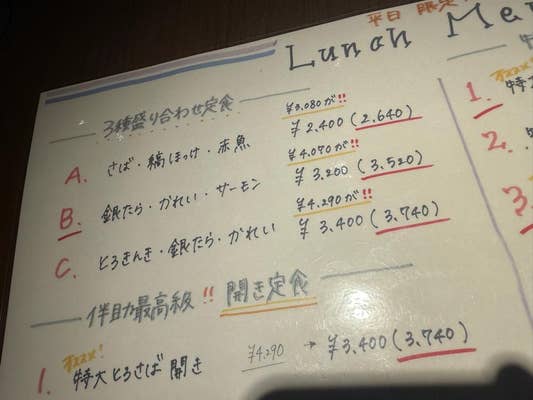 平日 限定
Lunch Me
3種盛り合わせ定食
¥3,080が!!
A. さば・縞ほっけ・赤魚 ¥2.400 (2.640)
¥4.070が!!
B. 銀だら・かれい・サーモン ¥3.200 (3.520)
¥4.290が!!
C. とろきんき・銀だら・かれい ¥3.400 (3.740)
最高級!! 開き定食
オススメ!
1. 特大とろさば 開き ¥4.290 → ¥3.400 (3.740)
オススメ!
1. 特大
2.
3.